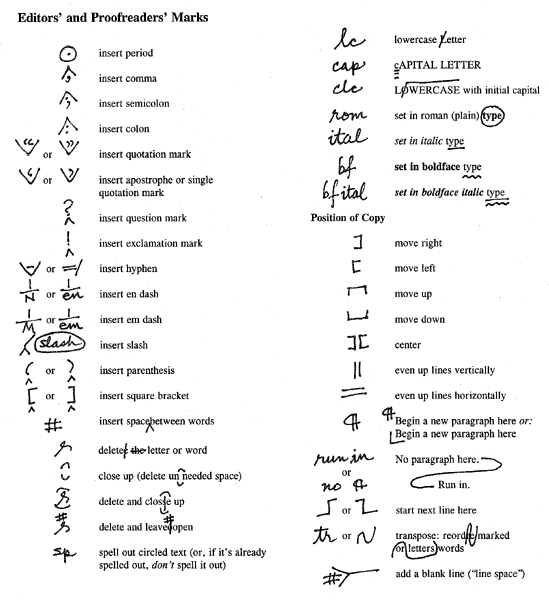 Editors' and Proofreaders' Marks
insert period
insert comma
insert semicolon
insert colon
“ or ” insert quotation mark
‘ or ’ insert apostrophe or single
quotation mark
? insert question mark
! insert exclamation mark
- or = insert hyphen
1/N or 1/en insert en dash
1/M or 1/em insert em dash
/ slash insert slash
( or ) insert parenthesis
[ or ] insert square bracket
# insert spacebetween words
delete the letter or word
close up (delete un needed space)
delete and close up
# delete and leave # open
sp spell out circled text (or, if it's already
spelled out, don't spell it out)
lc lowercase Letter
cap cAPITAL LETTER
clc LOWERCASE with initial capital
rom set in roman (plain) type
ital set in italic type
bf set in boldface type
bf ital set in boldface italic type
Position of Copy
] move right
[ move left
move up
move down
][ center
|| even up lines vertically
= even up lines horizontally
¶ ¶Begin a new paragraph here or:
Begin a new paragraph here
run in No paragraph here.
or
no ¶ Run in.
or start next line here
tr or reorder marked
transpose:
or letters words
# add a blank line ("line space")